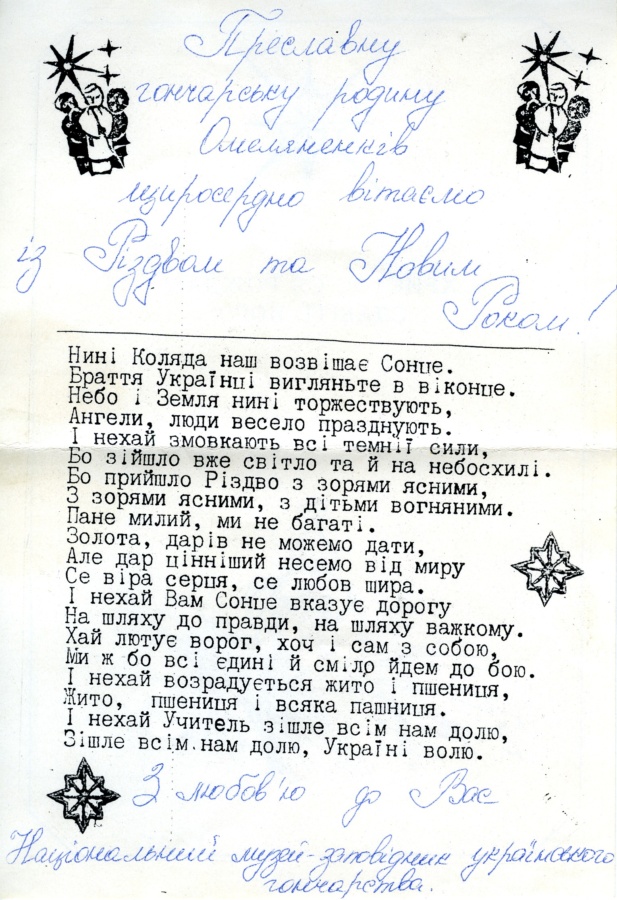 Преславну
гончарську родину
Омеляненків
щиросердно вітаємо
із Різдвом та Новим
Роком!
Нині Коляда наш возвішає Сонце.
Браття Українці вигляньте в віконце.
Небо і Земля нині торжествують,
Ангели, люди весело празднують.
І нехай змовкають всі темнії сили,
Бо зійшло вже світло та й на небосхилі.
Бо прийшло Різдво з зорями ясними,
З зорями ясними, з дітьми вогняними.
Пане милий, ми не багаті.
Золота, дарів не можемо дати,
Але дар цінніший несемо від миру
Се віра серця, се любов щира.
І нехай Вам Сонце вказує дорогу
На шляху до правди, на шляху важкому.
Хай лютує ворог, хоч і сам з собою,
Ми ж бо всі єдині й сміло йдем до бою.
І нехай возрадується жито і пшениця,
Жито, пшениця і всяка пашниця.
І нехай Учитель зішле всім нам долю,
Зішле всім нам долю, Україні волю.
З любов'ю до Вас
Національний музей-заповідник українського
гончарства.